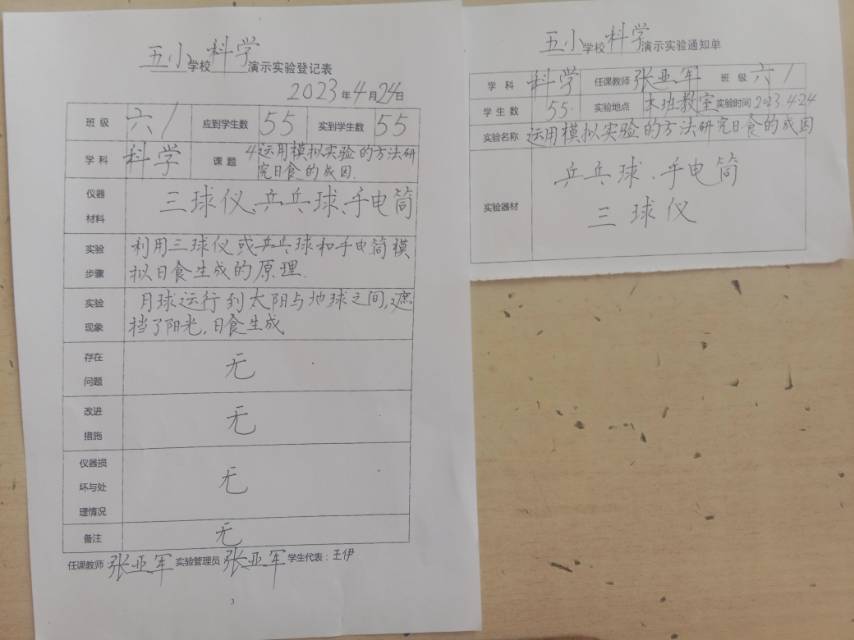 五小学校科学演示实验登记表
2023年4月24日
班级 六1 应到学生数 55 实到学生数 55
学科 科学 课题 4运用模拟实验的方法研
究日食的成因.
仪器
材料
三球仪、乒乓球、手电筒
实验
步骤
利用三球仪或乒乓球和手电筒模
拟日食生成的原理.
实验
现象
月球运行到太阳与地球之间,遮
挡了阳光,日食生成
存在
问题
无
改进
措施
无
仪器损
坏与处
理情况
无
备注 无
任课教师 张亚军 实验管理员 张亚军 学生代表:王伊
五小学校科学演示实验通知单
学科 科学 任课教师 张亚军 班级 六1
学生数 55 实验地点 本班教室 实验时间 2023.4.24
实验名称 运用模拟实验的方法研究日食的成因
实验器材
乒乓球、手电筒
三球仪